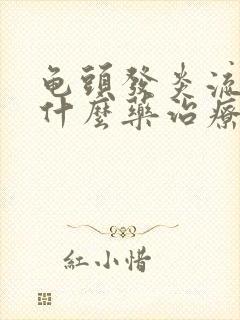 龟頭發炎流
什麼藥治療
紅小惜